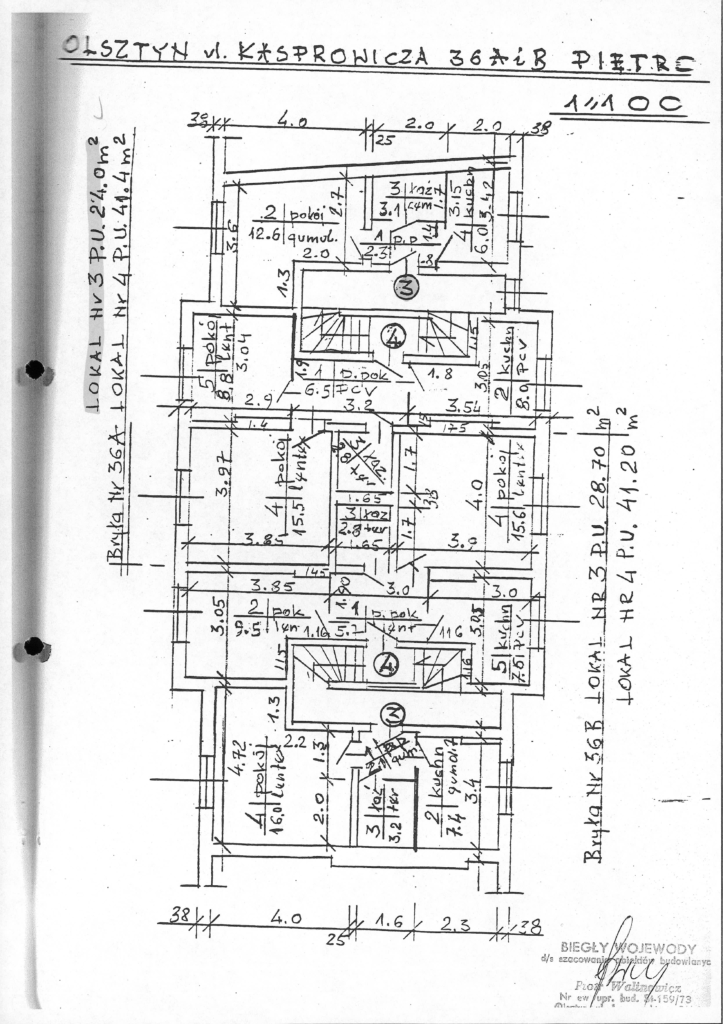 OLSZTYN ul. KASPROWICZA 36A i B PIĘTRO
1:100
LOKAL Nr 3 P.U. 24.0 m²
LOKAL Nr 4 P.U. 41.4 m²
Bryła Nr 36A
38 4.0 25 2.0 2.0 38
3 łaz
3.1
1.7
3.15
3.42
4 kuchn
6.0
2 pokój
12.6 gumol.
2.7
3.6
2.0
1 p.p
2.3
1.4
1.8
1.3
3
4
5 pokój
8.8 lent
3.04
1.9
1 p.pok
6.5 PCV
1.8
1.15
3.05
2 kuchn
8.0 PCV
2.9 3.2 3.54
1.4
1.75
3.97
4 pokój
15.5 lentex
1.7
4.0
4 pokój
15.6 lentex
1.65
3 łaz
2.8 ter
38
1.7
3.85 1.65 3.9
145
3.85 1.90 3.0 3.0
2 pok
9.5 len
3.05
1.16
1 p.pok
5.2 lent
116
3.05
5 kuchn
7.6 PCV
115
4
116
1.3
3
2.2
1.3
4.72
4 pokój
16.0 lentex
1 p.p
2.1 gum.
2.0
3 łaz
3.2 ter
2 kuchn
7.4 gumol.
3.4
LOKAL NR 3 P.U. 28.70 m²
LOKAL NR 4 P.U. 41.20 m²
Bryła Nr 36B
38 4.0 25 1.6 2.3 38
BIEGŁY WOJEWODY
d/s szacowania obiektów budowlanyc
Piotr Walinowicz
Nr ew. upr. bud. St-159/73